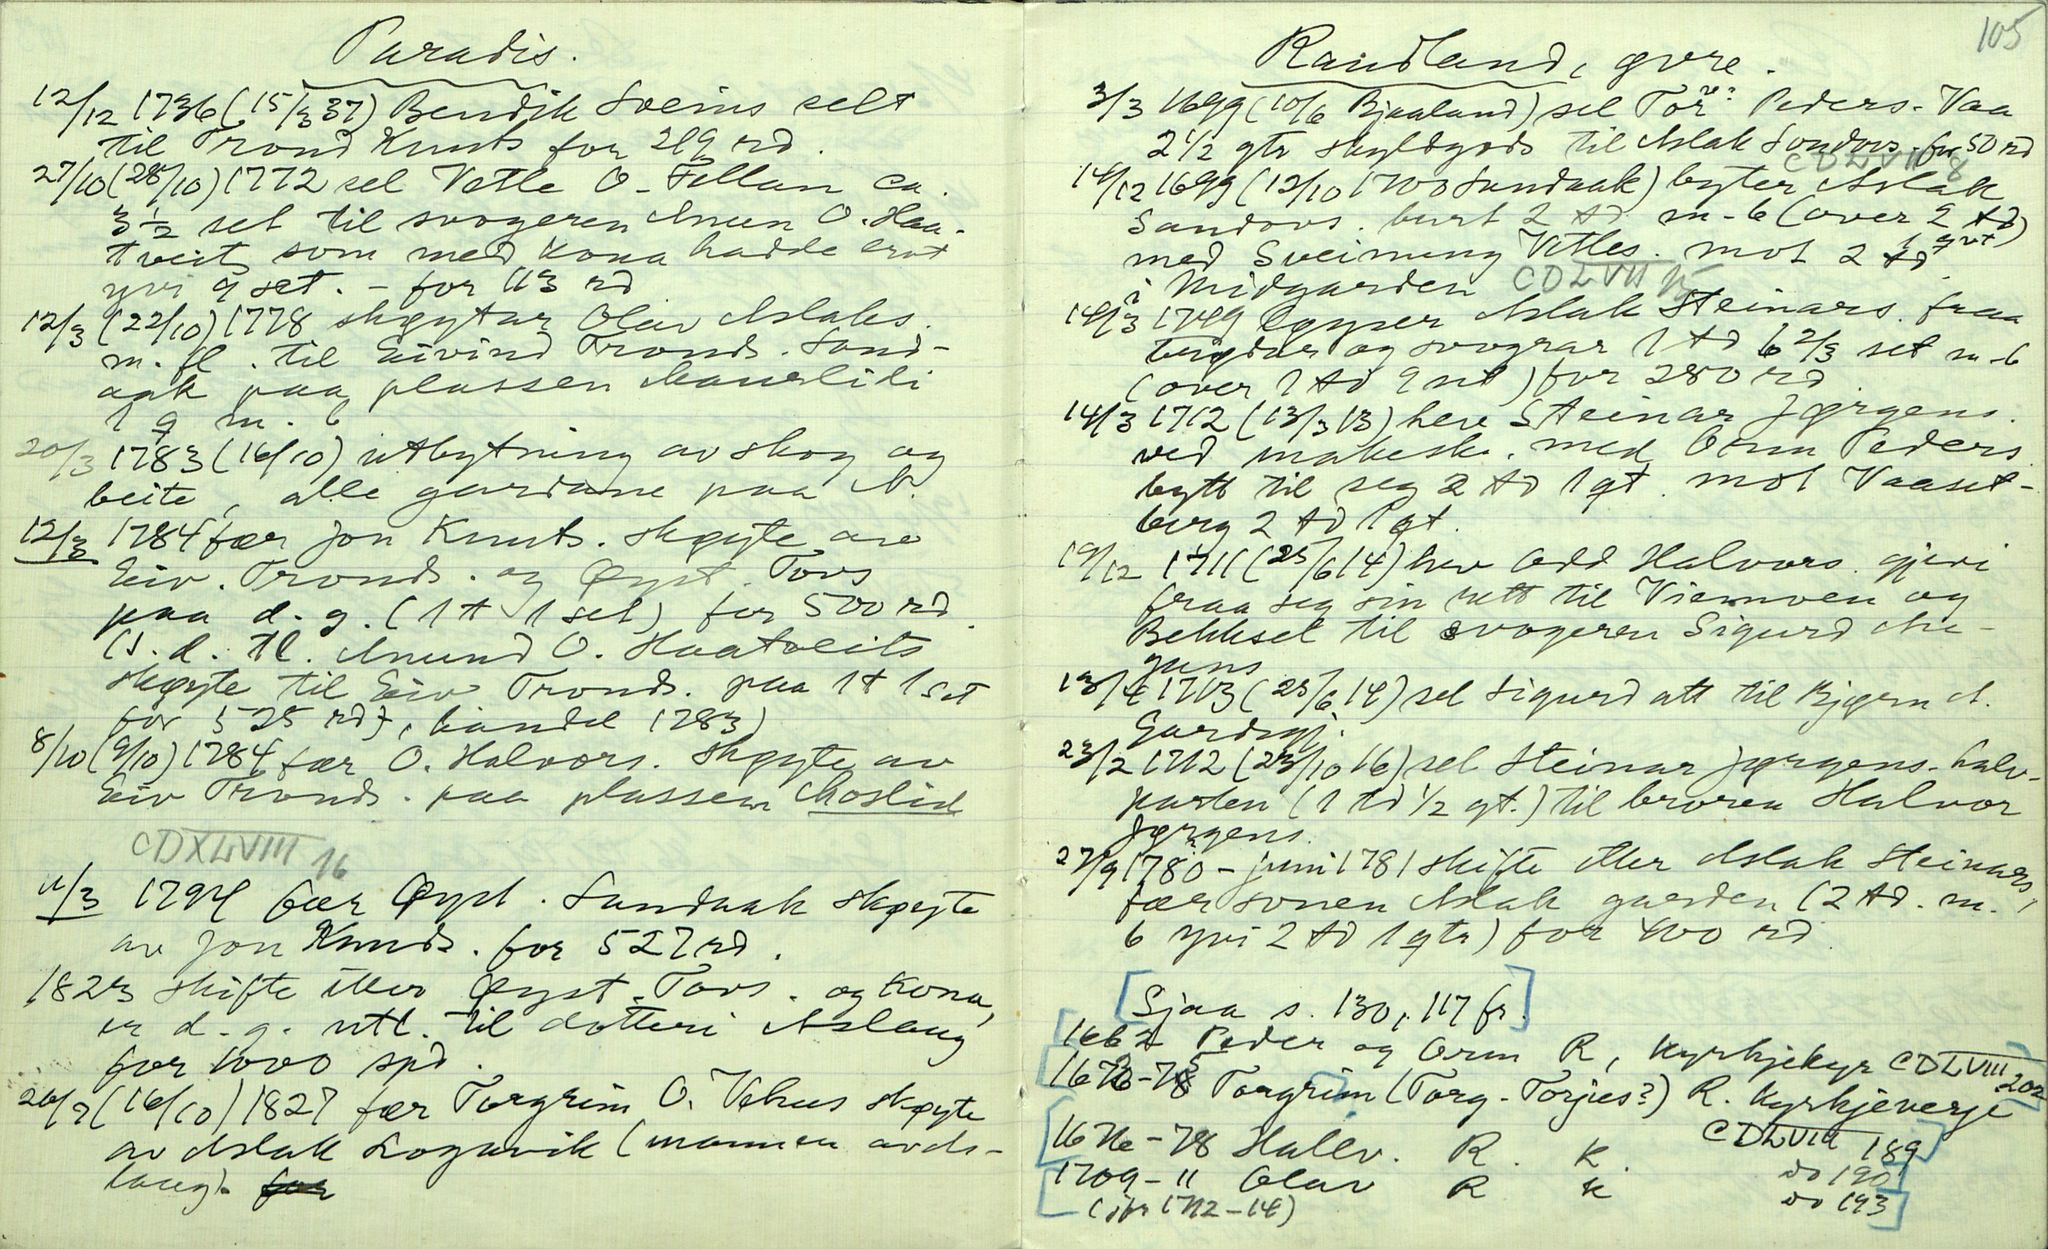 Paradis.
12/12 1736 (15/3 37) Bendik Sveins selt
til Trond Knuts for 219 rd.
27/10 (28/10) 1772 sel Vetle O. Fellan ca.
3 1/2 set til svogeren Anun O. Haa-
tveit, som med kona hadde ervt
yvi 9 set. - for 113 rd
12/3 (22/10) 1778 skøytar Olav Aslaks.
m. fl. til Eivind Tronds. Sand-
aak paa plassen
1 q m. 6
20/3 1783 (16/10) utbytning av skog og
beite, alle gardane paa N.
12/3 1784 fær Jon Knuts. skøyte av
Eiv. Tronds. og Øyst. Tovs
paa d. g. (1 t 1 set) for 500 rd.
(s. d. tl. Anund O. Haatveits
skøyte til Eiv Tronds. paa 1 t 1 set
for 525 rd, handel 1783)
8/10 (9/10) 1784 fær O. Halvors. skøyte av
Eiv Tronds. paa plassen Moslid
CDXLVIII 16
11/3 1794 fær Øyst. Sandaak skøyte
av Jon Knuds. for 527 rd.
1823 skifte etter Øyst. Tovs. og kona,
er d. g. utl. til dotteri Aslaug
for 1000 spd.
26/7 (16/10) 1827 fær Torgrim O. Vehus skøyte
av Aslak Logavik (mannen aat As-
laug). for
105
Raudland, øvre.
3/3 1699 (10/6 Bjaaland) sel Tor Peders. Vaa
2 1/2 gts skyldgods til Aslak Sondovs. for 50 rd
CDLVIII 8
14/12 1699 (12/10 1700 Sandaak) byter Aslak
Sandovs. burt 2 td m-6 (over 2 td)
med Sveinung Vetles. mot 2 td 1 qrt
i Midgarden CDLVII 15
14/3 1749 løyser Aslak Steinars. fraa
brødar og svograr 1 td 6 2/3 set m-6
(over 1 td 9 set) for 280 rd.
14/3 1712 (13/3 13) hev Steinar Jørgens.
ved makesk. med Orm Peders
bytt til seg 2 td 1 qt. mot Vaaset-
berg 2 td 1 qt.
19/12 1711 (25/6 14) hev Odd Halvors. gjevi
fraa seg sin rett til Viermoen og
Bekksel til svogeren Sigurd Au-
guns
13/4 1713 (25/6 14) sel Sigurd att til Bjørn A.
Gardsgj.
23/2 1712 (23/10 16) sel Steinar Jørgens. halv-
parten (1 td 1/2 qt.) til broren Halvor
Jørgens.
27/9 1780 - juni 1781 skifte etter Aslak Steinars,
fær sonen Aslak garden (2 td. m.
6 yvi 2 td 1 qtr) for 400 rd.
[Sjaa s. 130, 117 fr.]
[1662 Peder og Orm R, kyrkjekyr CDLVIII 202]
[1676-78 Torgrim (Torg-Torjus?) R. Kyrkjeverje
CDLVIII 189]
[1676-78 Hallv. R. K. do 190]
[1709-11 Olav R K do 193]
(ibr 1712-14)